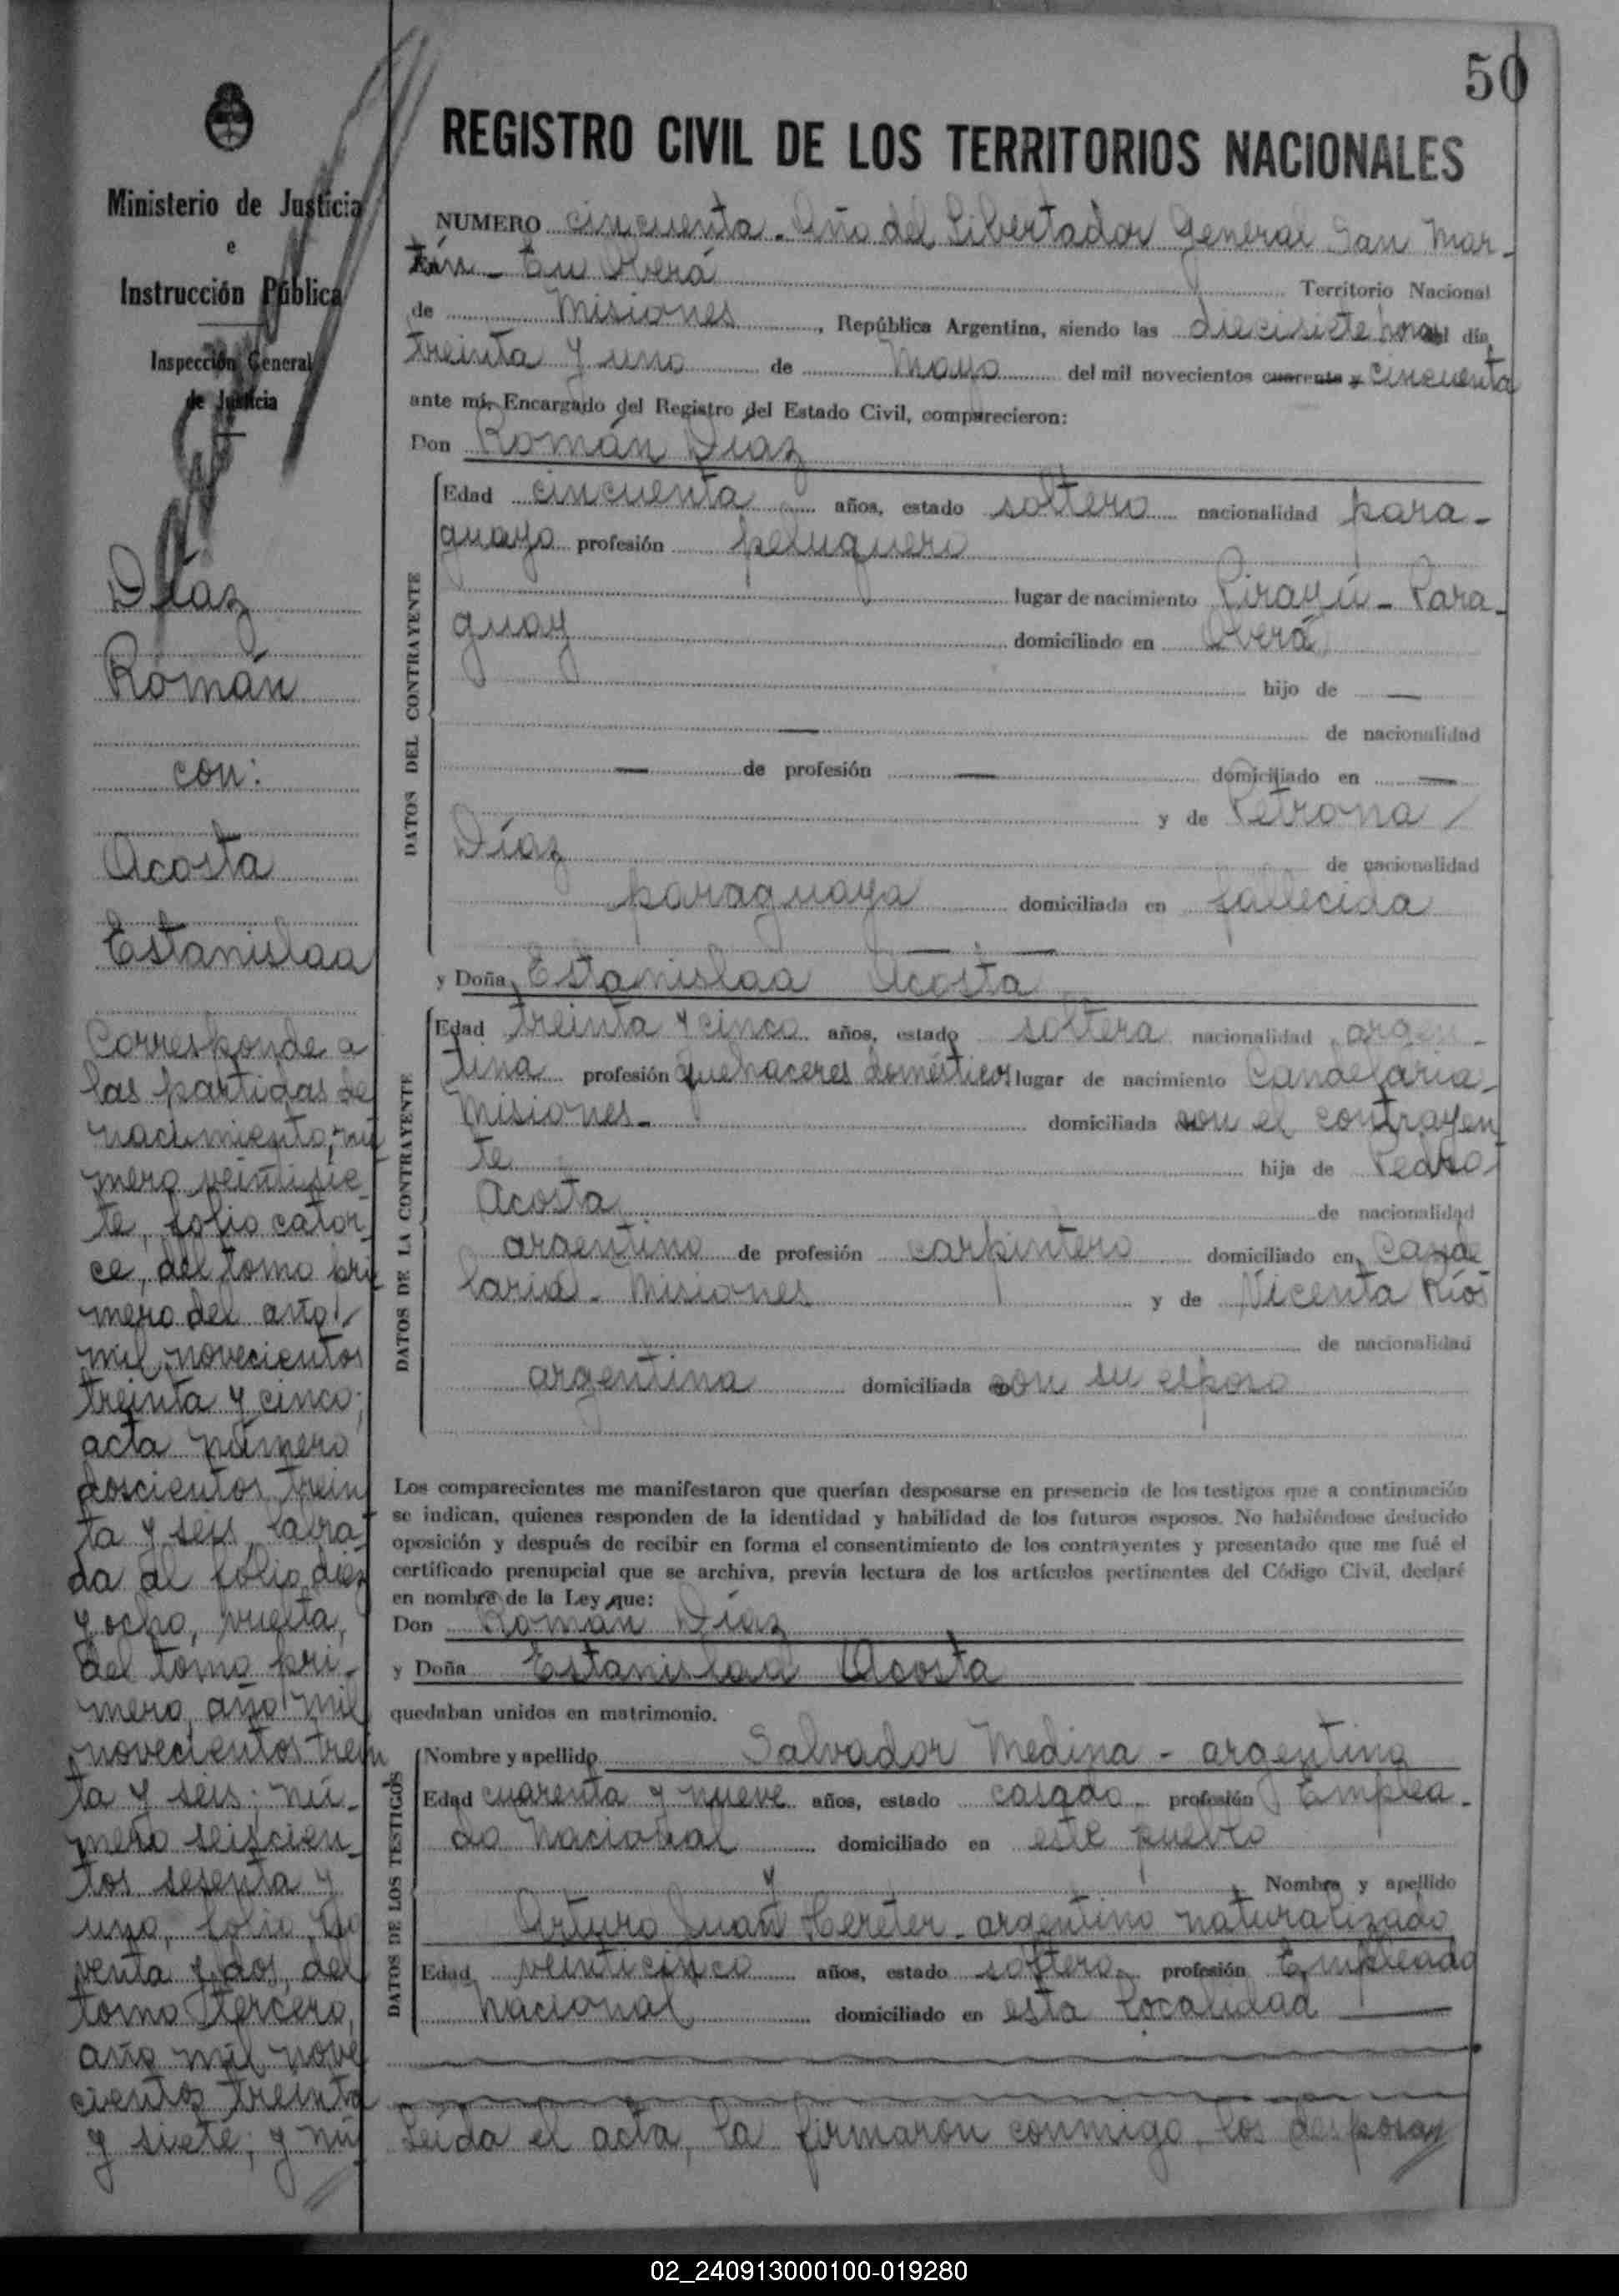 50
Ministerio de Justicia
e
Instrucción Pública
Inspección General
de Justicia
Díaz
Román
con:
Acosta
Estanislaa
Corresponde a
las partidas de
nacimiento, nú
mero veintisie
te, folio cator
ce, del tomo pri
mero del año
mil novecientos
treinta y cinco;
acta número
doscientos trein
ta y seis, labra
da al folio diez
y ocho, vuelta,
del tomo pri-
mero, año mil
novecientos trein
ta y seis; nú-
mero seiscien
tos sesenta y
uno, folio no
venta y dos, del
tomo tercero,
año mil nove
cientos treinta
y siete; y nú
REGISTRO CIVIL DE LOS TERRITORIOS NACIONALES
NUMERO cincuenta. Año del Libertador General San Mar-
tín - En Oberá Territorio Nacional
de Misiones, República Argentina, siendo las diecisiete horas del día
treinta y uno de Mayo del mil novecientos cuarenta y cincuenta
ante mí, Encargado del Registro del Estado Civil, comparecieron:
Don Román Díaz
DATOS DEL CONTRAYENTE
Edad cincuenta años, estado soltero nacionalidad para-
guayo profesión peluquero
lugar de nacimiento Pirayú - Para-
guay domiciliado en Oberá
hijo de —
— de nacionalidad
— de profesión — domiciliado en —
y de Petrona
Díaz de nacionalidad
paraguaya domiciliada en fallecida
y Doña Estanislaa Acosta
DATOS DE LA CONTRAYENTE
Edad treinta y cinco años, estado soltera nacionalidad argen-
tina profesión quehaceres domésticos lugar de nacimiento Candelaria-
Misiones- domiciliada con el contrayen
te hija de Pedro
Acosta de nacionalidad
argentino de profesión carpintero domiciliado en Cande
laria - Misiones y de Vicenta Ríos
de nacionalidad
argentina domiciliada con su esposo
Los comparecientes me manifestaron que querían desposarse en presencia de los testigos que a continuación
se indican, quienes responden de la identidad y habilidad de los futuros esposos. No habiéndose deducido
oposición y después de recibir en forma el consentimiento de los contrayentes y presentado que me fué el
certificado prenupcial que se archiva, previa lectura de los artículos pertinentes del Código Civil, declaré
en nombre de la Ley que:
Don Román Díaz
y Doña Estanislaa Acosta
quedaban unidos en matrimonio.
DATOS DE LOS TESTIGOS
Nombre y apellido Salvador Medina - argentino
Edad cuarenta y nueve años, estado casado profesión Emplea-
do Nacional domiciliado en este pueblo
y Nombre y apellido
Arturo Juan Hereter - argentino naturalizado
Edad veinticinco años, estado soltero profesión Empleado
Nacional domiciliado en esta localidad
Leída el acta, la firmaron conmigo, los desposa
02_240913000100-019280